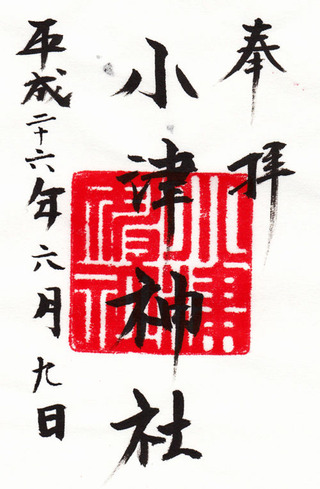 奉拝
小津神社
平成二十六年六月九日